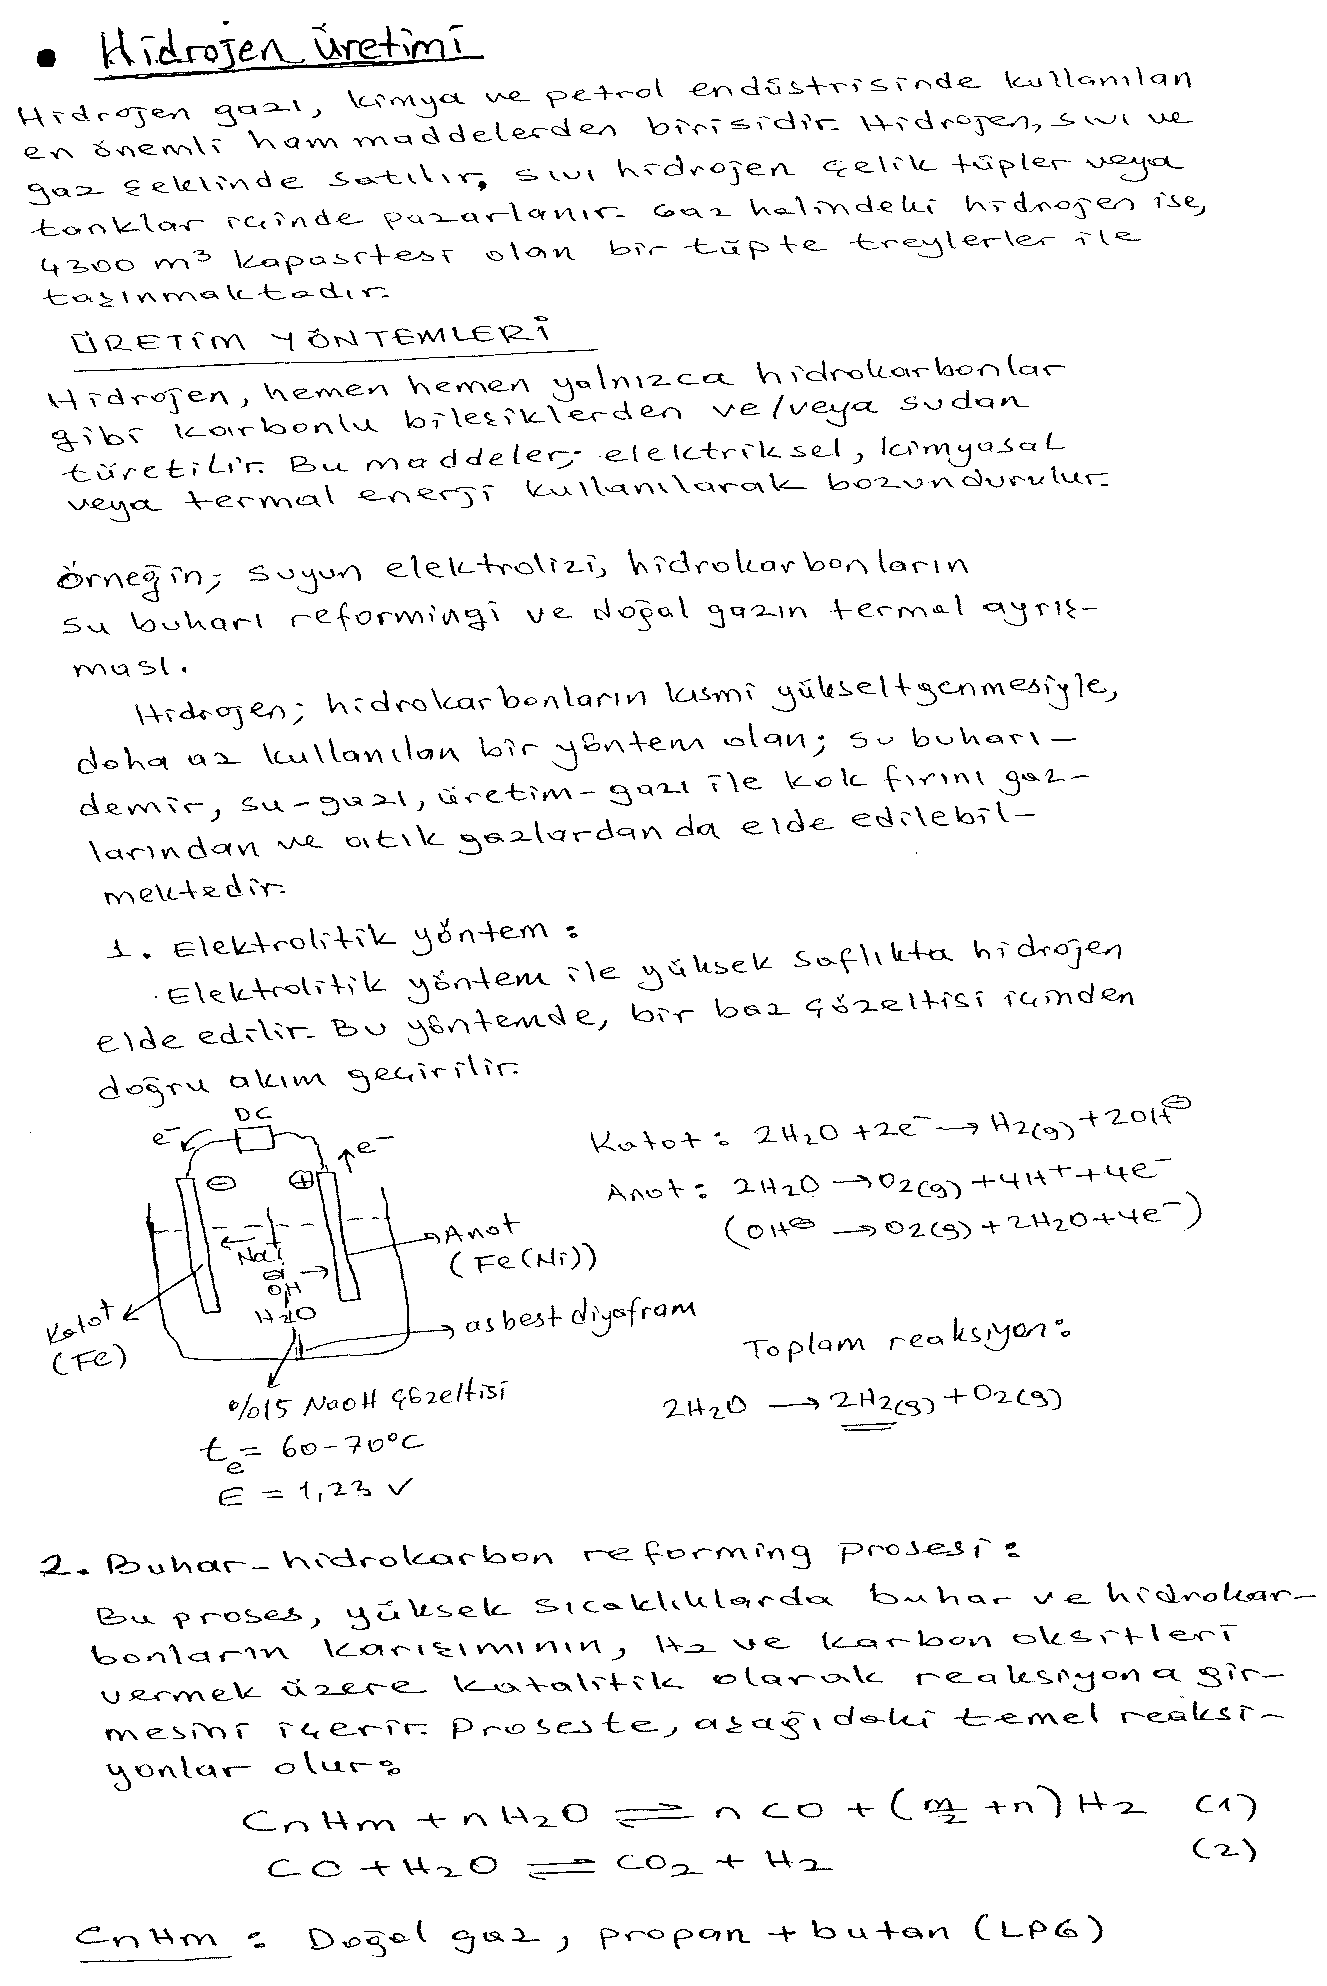 • Hidrojen üretimi
Hidrojen gazı, kimya ve petrol endüstrisinde kullanılan
en önemli ham maddelerden birisidir. Hidrojen, sıvı ve
gaz şeklinde satılır, sıvı hidrojen çelik tüpler veya
tanklar içinde pazarlanır. Gaz halindeki hidrojen ise,
4300 m³ kapasitesi olan bir tüpte treylerler ile
taşınmaktadır.
ÜRETİM YÖNTEMLERİ
Hidrojen, hemen hemen yalnızca hidrokarbonlar
gibi karbonlu bileşiklerden ve/veya sudan
türetilir. Bu maddeler; elektriksel, kimyasal
veya termal enerji kullanılarak bozundurulur.
Örneğin; suyun elektrolizi, hidrokarbonların
su buharı reformingi ve doğal gazın termal ayrış-
ması.
Hidrojen; hidrokarbonların kısmi yükseltgenmesiyle,
daha az kullanılan bir yöntem olan; su buharı-
demir, su-gazı, üretim-gazı ile kok fırını gaz-
larından ve atık gazlardan da elde edilebil-
mektedir.
1. Elektrolitik yöntem :
Elektrolitik yöntem ile yüksek saflıkta hidrojen
elde edilir. Bu yöntemde, bir baz çözeltisi içinden
doğru akım geçirilir.
DC
e⁻
e⁻
⊖ ⊕
Na⁺
OH⊖
H₂O
Anot
(Fe(Ni))
Katot
(Fe)
asbest diyafram
%15 NaOH çözeltisi
te = 60-70°C
E = 1,23 V
Katot : 2H₂O + 2e⁻ → H₂(g) + 2OH⊖
Anot : 2H₂O → O₂(g) + 4H⁺ + 4e⁻
(OH⊖ → O₂(g) + 2H₂O + 4e⁻)
Toplam reaksiyon :
2H₂O → 2H₂(g) + O₂(g)
2. Buhar-hidrokarbon reforming prosesi :
Bu proses, yüksek sıcaklıklarda buhar ve hidrokar-
bonların karışımının, H₂ ve karbon oksitleri
vermek üzere katalitik olarak reaksiyona gir-
mesini içerir. Proseste, aşağıdaki temel reaksi-
yonlar olur :
CnHm + nH₂O ⇌ nCO + (m/2 + n) H₂ (1)
CO + H₂O ⇌ CO₂ + H₂ (2)
CnHm : Doğal gaz, propan + butan (LPG)